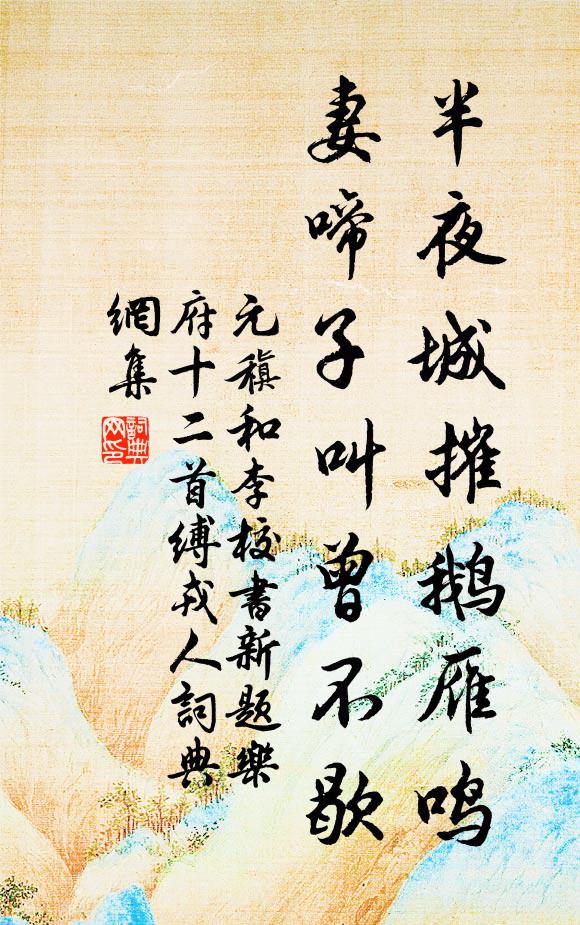 半夜城摧鹅雁鸣
妻啼子叫曾不歇
元稹和李校書新題樂
府十二首縛戎人詞典
網集
詞典
网印